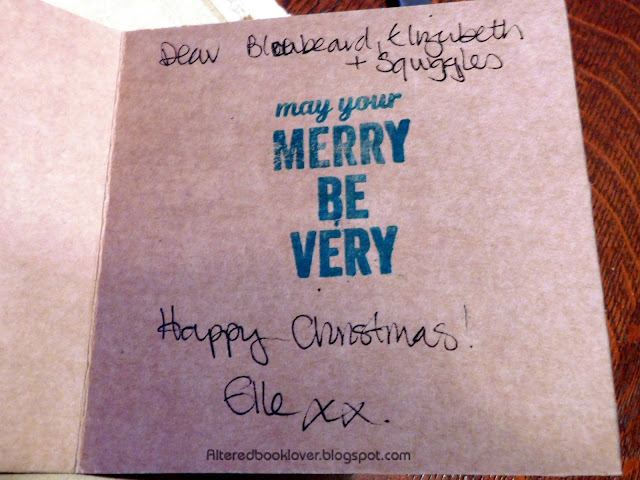 Dear Bluebeard, Elizabeth
+ Squiggles
may your
MERRY
BE
VERY
Happy Christmas!
Elle xx.
Alteredbooklover.blogspot.com